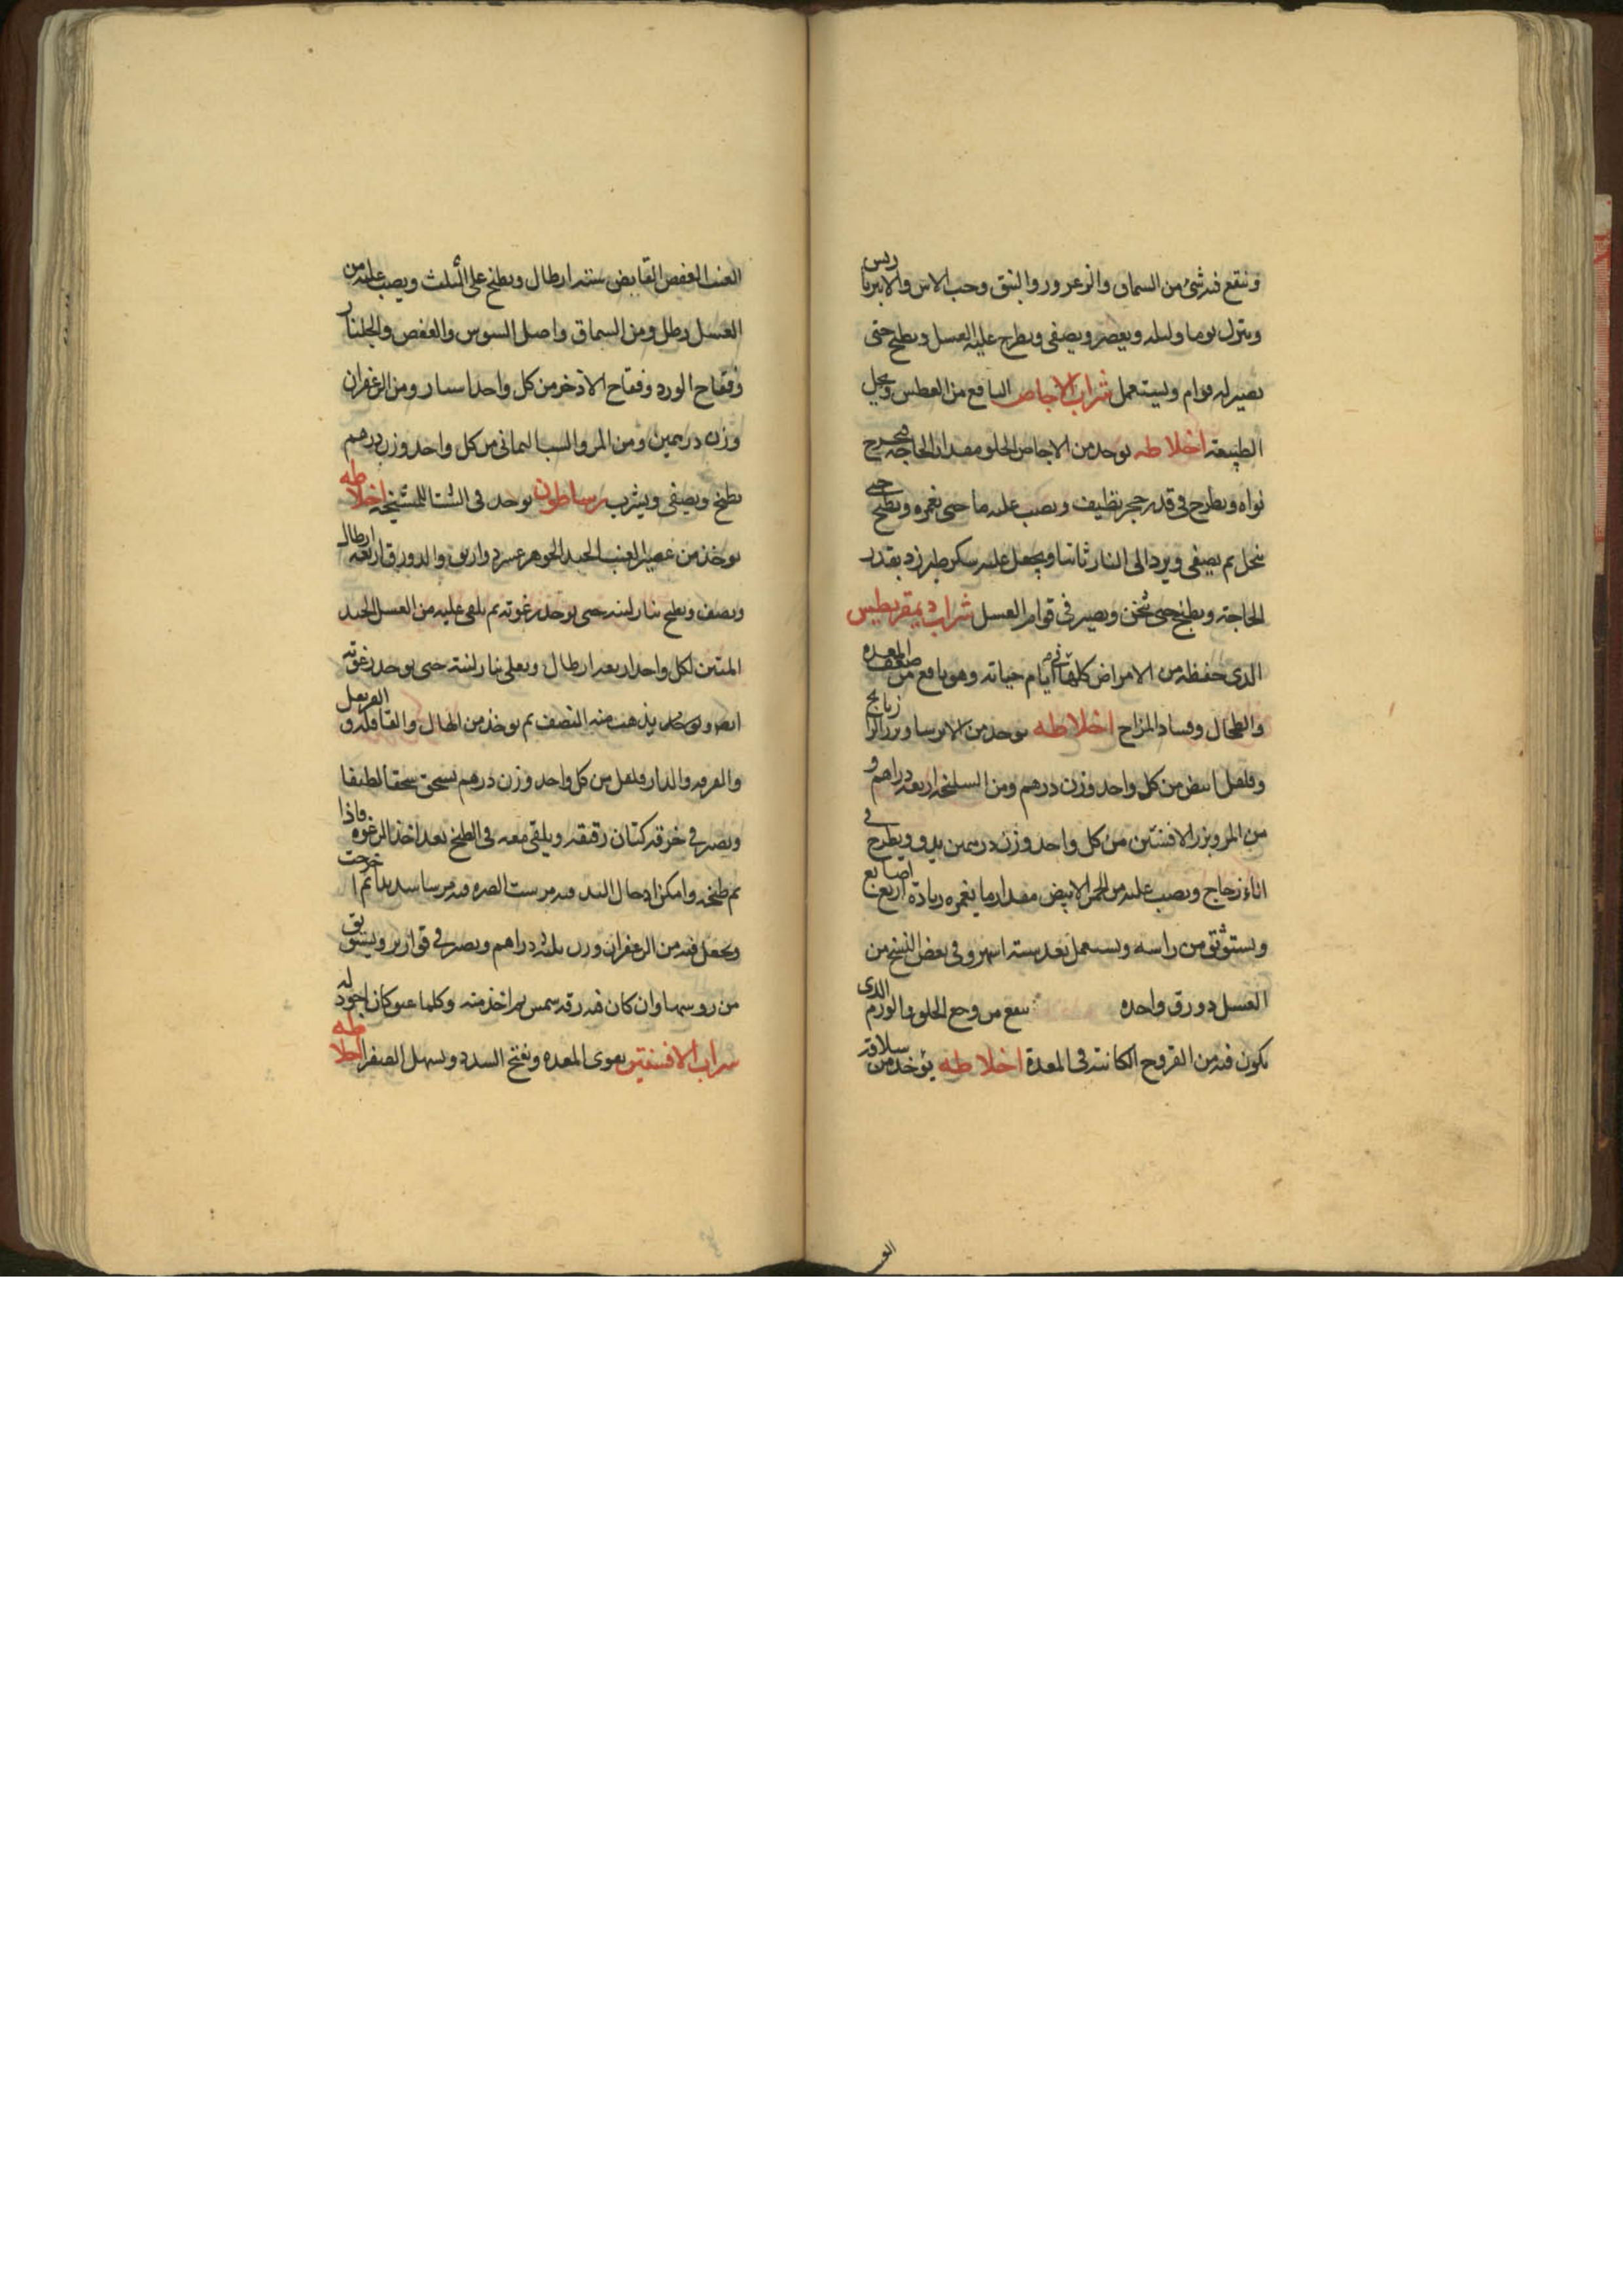 وينقع فيه شئ من السماق والزعرور والنبق وحب الاس والاميرباريس
ويترك يوما وليله ويعصر ويصفى ويطرح عليه العسل ويطبخ حتى
يصير له قوام ويستعمل شراب الاجاص النافع من العطس ويحل
الطبيعة اخلاطه يوخذ من الاجاص الحلو مقدار الحاجة فيخرج
نواه ويطرح في قدر حجر نظيف ويصب عليه ما حتى يغمره ويطبخ حتى
ينحل ثم يصفى ويرد الى النار ثانيا ويجعل عليه سكر طبرزد بقدر
الحاجة ويطبخ حتى يثخن ويصير في قوام العسل شراب ديمقريطيس
الذى حفظه من الامراض كلها في ايام حياته وهو نافع من ضعف المعده
والطحال وفساد المزاج اخلاطه يوخذ من الايرسا وبزر الرازيانج
وفلفل ابيض من كل واحد وزن درهم ومن السليخه اربعه دراهم و
من المر وبزر الافسنتين من كل واحد وزن درهمين يدق ويطرح في
اناء زجاج ويصب عليه من الخمر الابيض مقدار ما يغمره زيادة اربع اصابع
ويستوثق من راسه ويستعمل بعد سته اشهر وفي بعض النسخ من
العسل دورق واحده ينفع من وجع الحلق والورم الذى
يكون فيه من القروح الكائنة في المعدة اخلاطه يؤخذ من سلاقة
العنب العفص القابض سته ارطال ويطبخ على الثلث ويصب عليه من
العسل رطل ومن السماق واصل السوس والعفص والجلنار
وفقاح الورد وفقاح الاذخر من كل واحد استار ومن الزعفران
وزن درهمين ومن المر والشب اليمانى من كل واحد وزن درهم
يطبخ ويصفى ويشرب رساطون يوخذ في الشتا للمشيخه اخلاطه
يوخذ من عصير العنب الجيد الجوهر عشر دواريق والدورق اربعه ارطال
ويصف ويطبخ بنار لينه حتى يوخذ رغوته ثم يلقى عليه من العسل الجيد
المتين لكل واحد اربعه ارطال ويغلى بنار لينة حتى يوخذ رغوته
ايضا يذهب منه النصف ثم يوخذ من الهال والقاقله والقرنفل
والقرفه والدارفلفل من كل واحد وزن درهم يسحق سحقا لطيفا
ويصر في خرقه كتان رقيقه ويلقى معه في الطبخ بعد اخذ الرغوه فاذا
تم طبخه وامكن ادخال اليد فيه مرست الصره فيه مرسا شديدا ثم اخرجت
ويجعل فيه من الزعفران وزن ثلثه دراهم ويصير في قوارير ويستوثق
من روسها وان كان فيه رقه شمس ثم اخذ منه وكلما عتق كان اجود له
شراب الافسنتين يقوى المعده ويفتح السدد ويسهل الصفرا اخلاطه